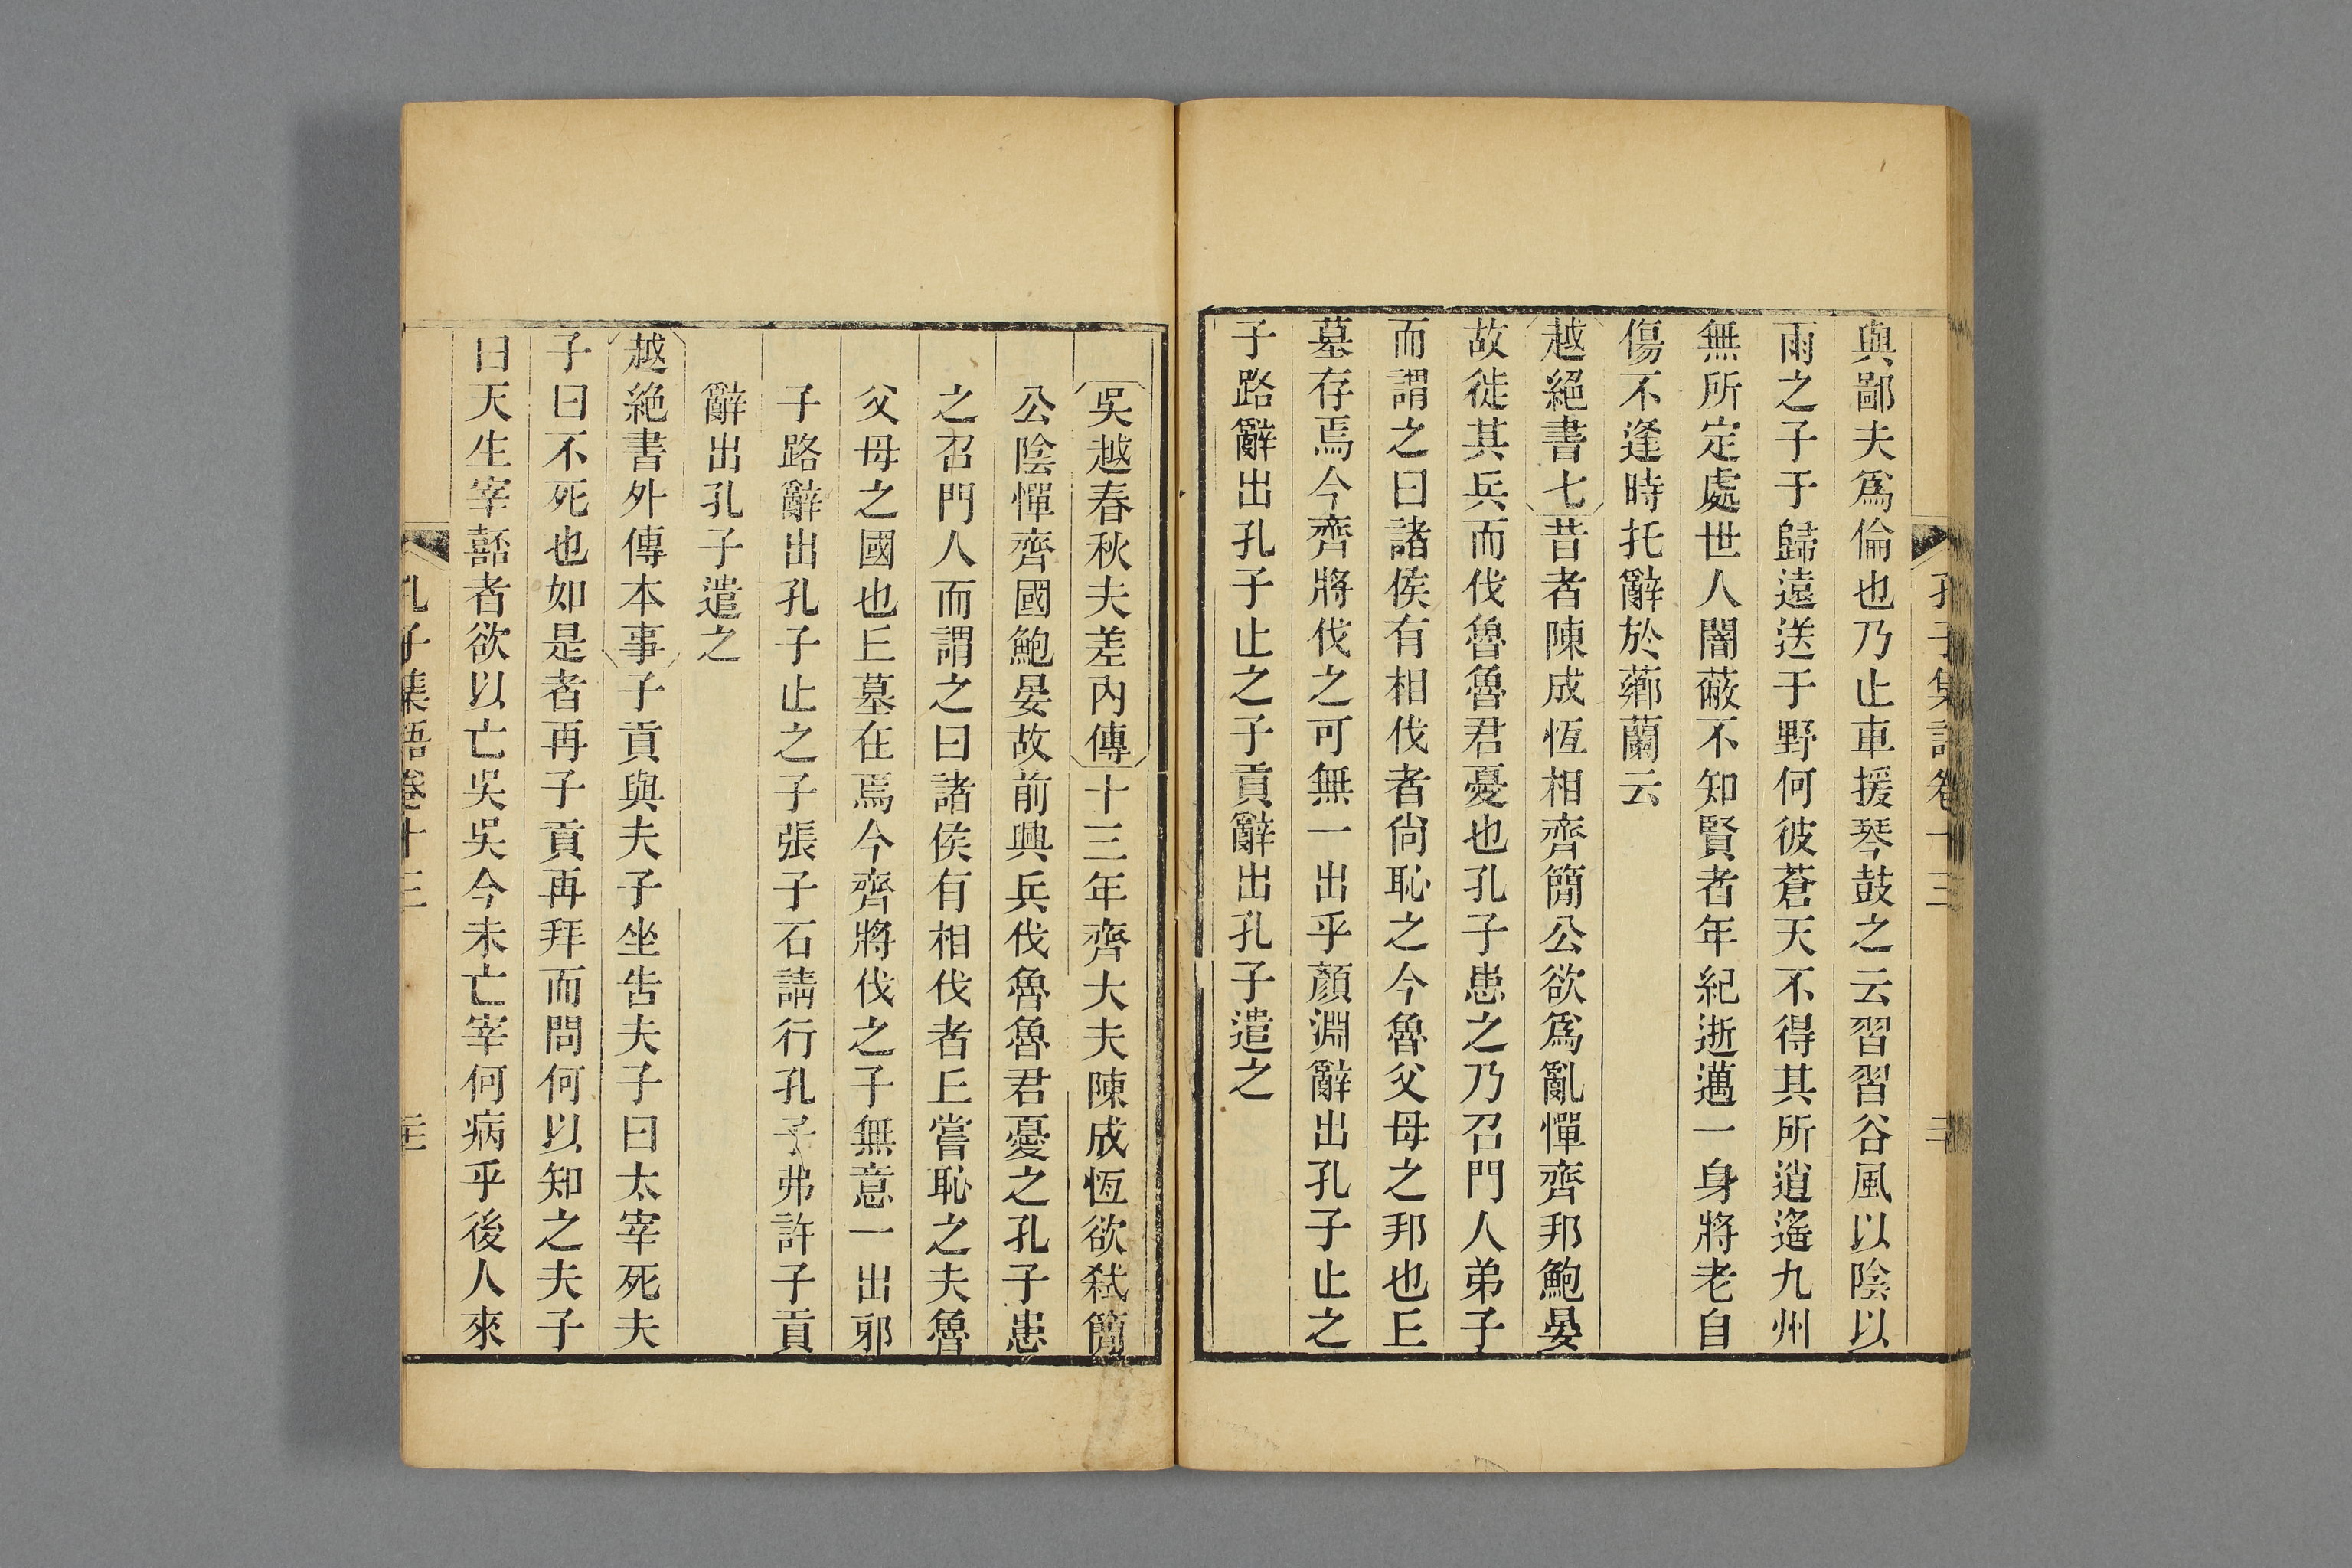 孔子集語卷十三
與鄙夫爲倫也乃止車援琴鼓之云習習谷風以陰以
雨之子于歸遠送于野何彼蒼天不得其所逍遙九州
無所定處世人闇蔽不知賢者年紀逝邁一身將老自
傷不逢時托辭於薌蘭云
越絕書七昔者陳成恆相齊簡公欲爲亂憚齊邦鮑晏
故徙其兵而伐魯魯君憂也孔子患之乃召門人弟子
而謂之曰諸侯有相伐者尙恥之今魯父母之邦也𠀉
墓存焉今齊將伐之可無一出乎顏淵辭出孔子止之
子路辭出孔子止之子貢辭出孔子遣之
吳越春秋夫差內傳十三年齊大夫陳成恆欲弒簡
公陰憚齊國鮑晏故前興兵伐魯魯君憂之孔子患
之召門人而謂之曰諸侯有相伐者𠀉嘗恥之夫魯
父母之國也𠀉墓在焉今齊將伐之子無意一出邪
子路辭出孔子止之子張子石請行孔子弗許子貢
辭出孔子遣之
越絕書外傳本事子貢與夫子坐告夫子曰太宰死夫
子曰不死也如是者再子貢再拜而問何以知之夫子
曰天生宰嚭者欲以亡吳吳今未亡宰何病乎後人來
孔子集語卷十三